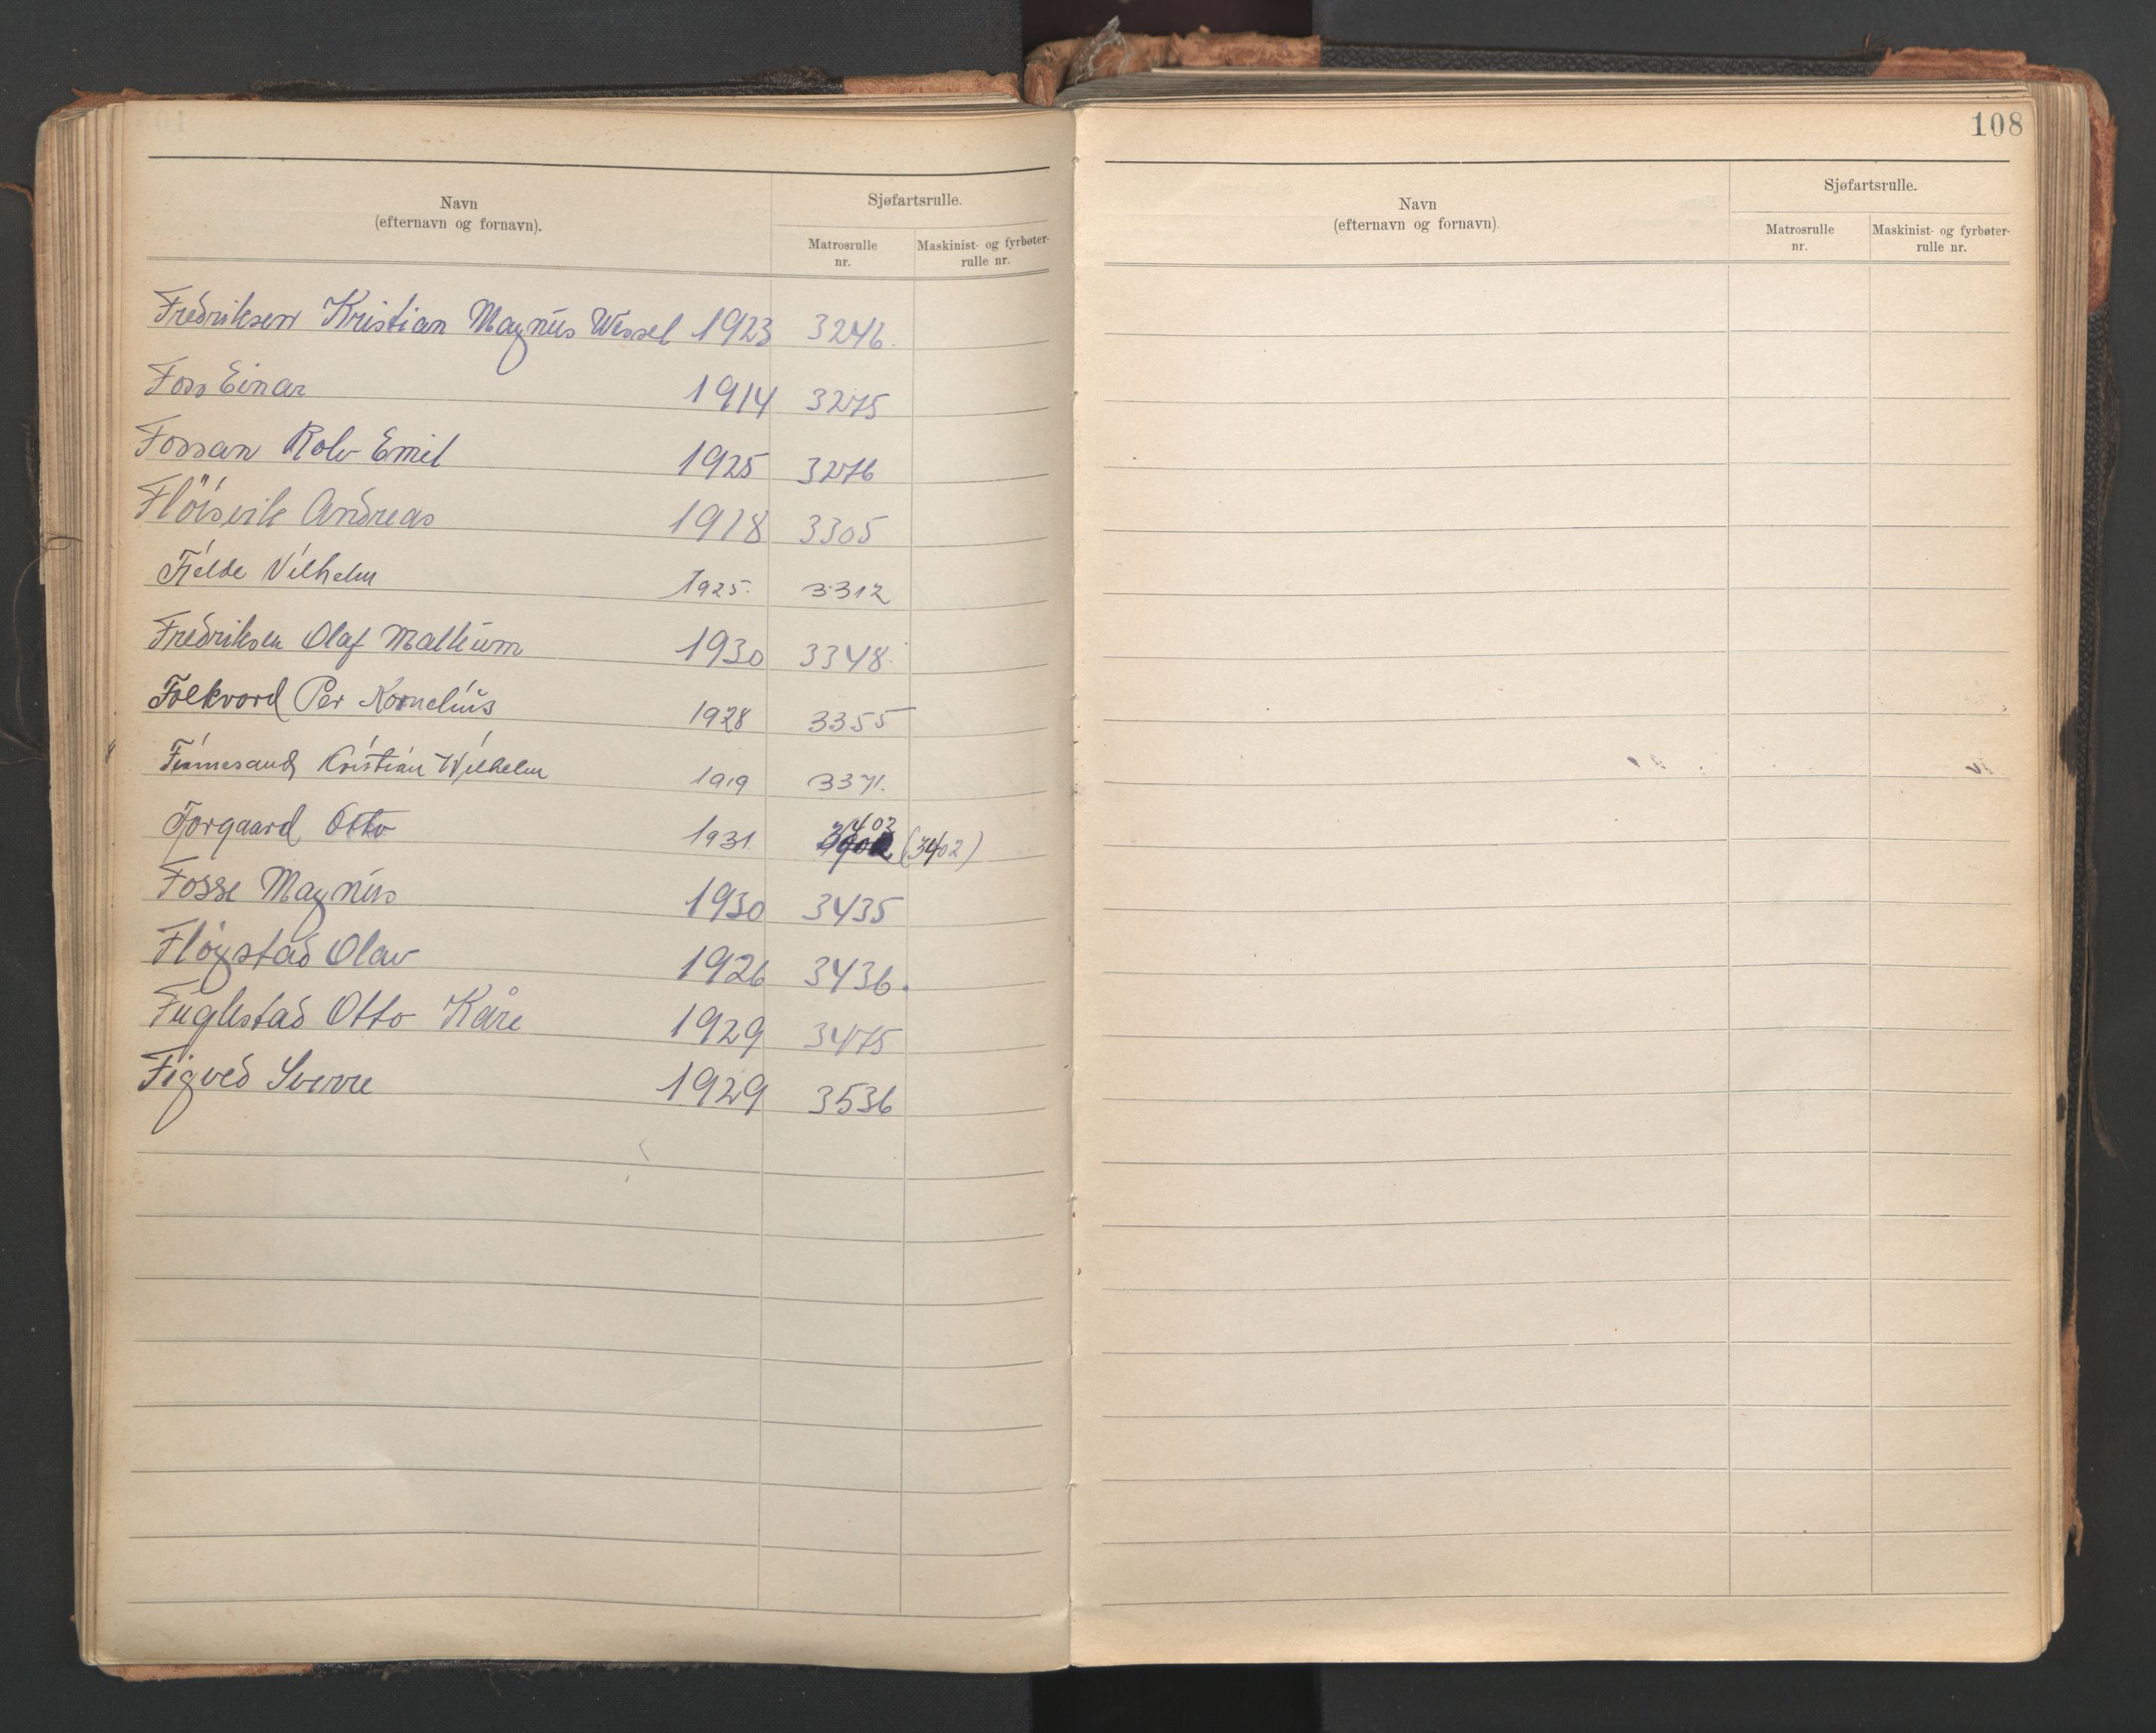 Navn
(efternavn og fornavn).
Sjøfartsrulle.
Matrosrulle
nr.
Maskinist- og fyrbøter-
rulle nr.
Fredriksen Kristian Magnus Wessel 1923 3246.
Foss Einar 1914 3275
Fossan Rolv Emil 1925 3276
Flöisvik Andreas 1918 3305
Fjelde Vilhelm 1925. 3312
Fredriksen Olaf 1930 3348.
Folkvord Per Kornelius 1928 3355
Finnesand Kristian Wilhelm 1919 3371.
Fjorgaard Otto 1931 3402 (3402)
Fosse Magnus 1930 3435
Fløystad Olav 1926 3436.
Fuglestad Otto Kåre 1929 3475
Figved Sverre 1929 3536
108
Navn
(efternavn og fornavn).
Sjøfartsrulle.
Matrosrulle
nr.
Maskinist- og fyrbøter-
rulle nr.